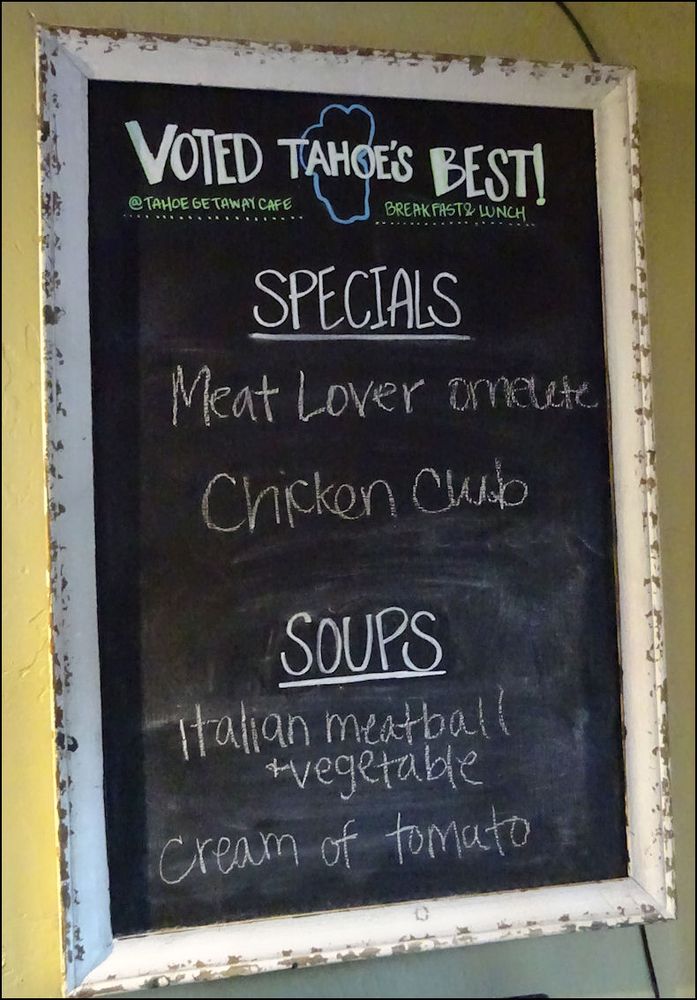 VOTED TAHOE'S BEST!
@TAHOEGETAWAYCAFE BREAKFAST & LUNCH
SPECIALS
Meat Lover omelete
Chicken Club
SOUPS
Italian meatball
+vegetable
cream of tomato